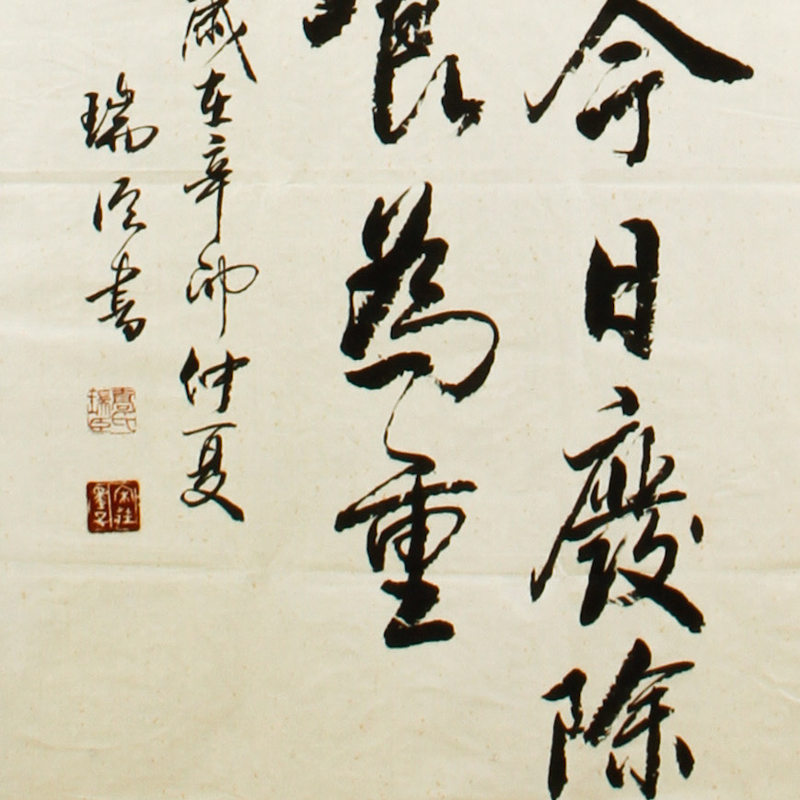 今日廢除
為重
歲在辛卯仲夏
瑞臣書